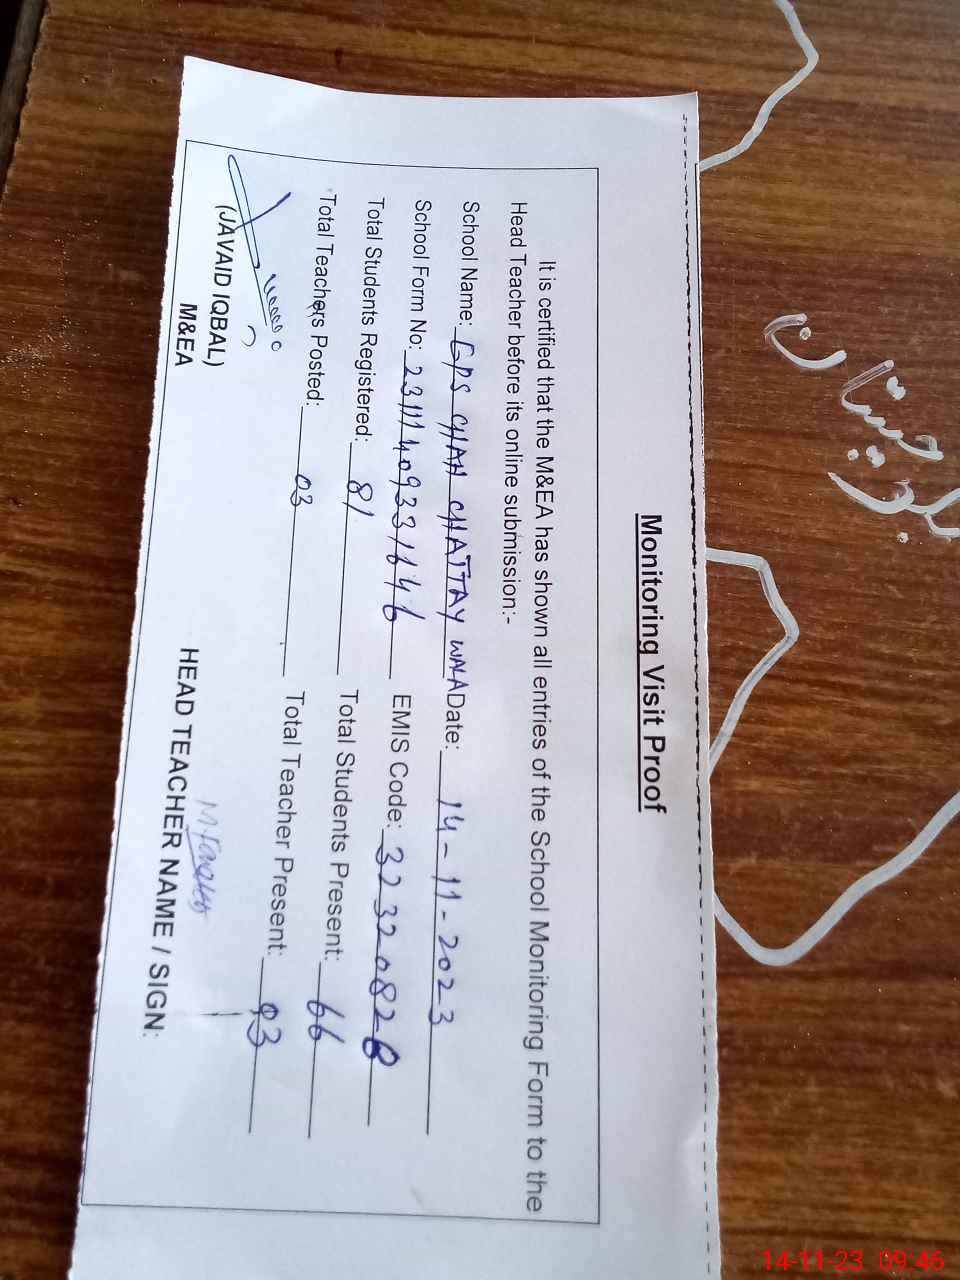 Monitoring Visit Proof
It is certified that the M&EA has shown all entries of the School Monitoring Form to the
Head Teacher before its online submission:-
School Name: GPS CHAH CHATTAY WALA Date: 14-11-2023
School Form No: 23111409331646 EMIS Code: 32320828
Total Students Registered: 81 Total Students Present: 66
Total Teachers Posted: 03 Total Teacher Present: 03
(JAVAID IQBAL)
M&EA
HEAD TEACHER NAME / SIGN:
بلوچستان
14-11-23 09:46